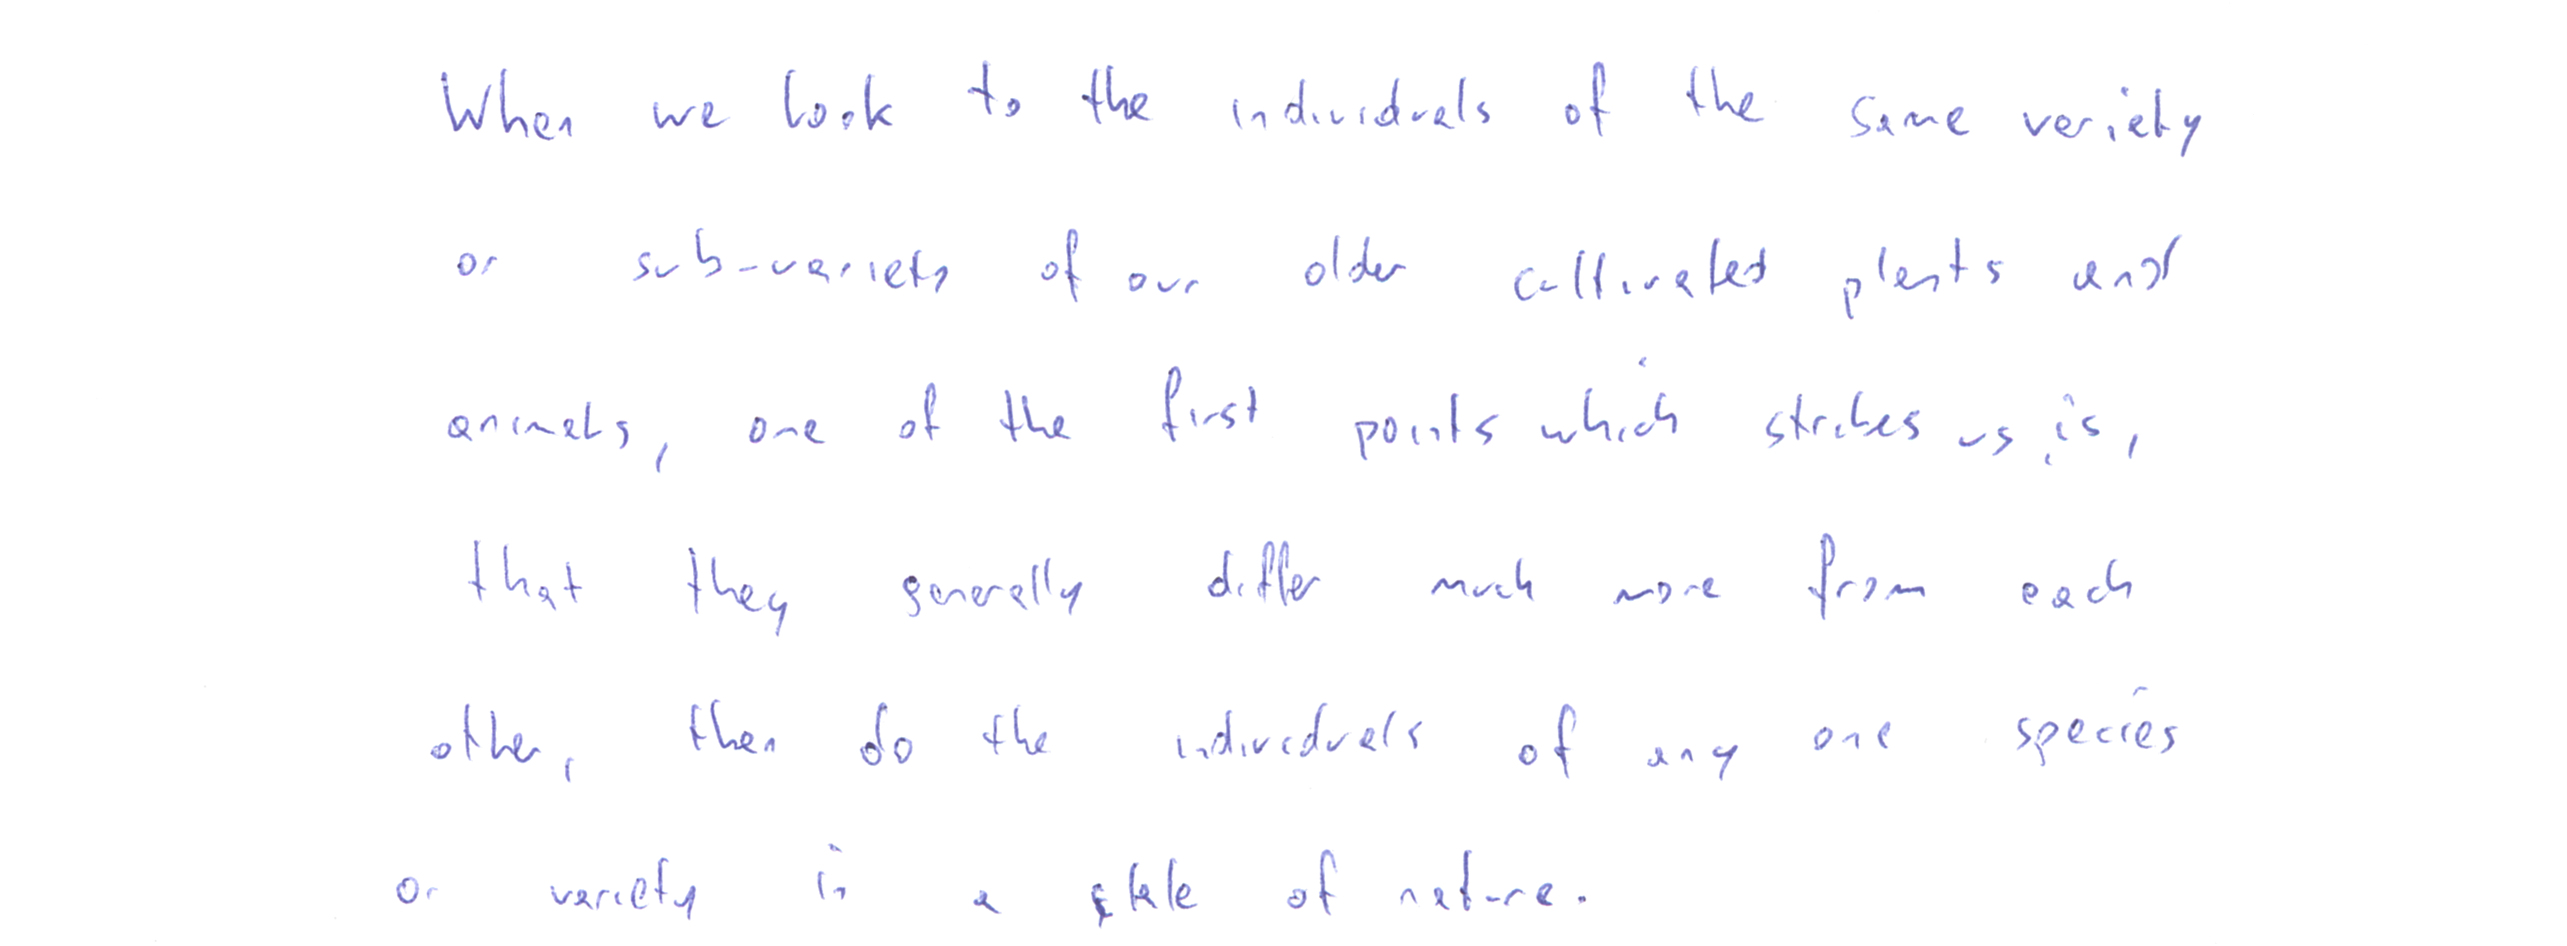 When we look to the individuals of the same variety
or sub-variety of our older cultivated plants and
animals, one of the first points which strikes us is,
that they generally differ much more from each
other, than do the individuals of any one species
or variety in a state of nature.